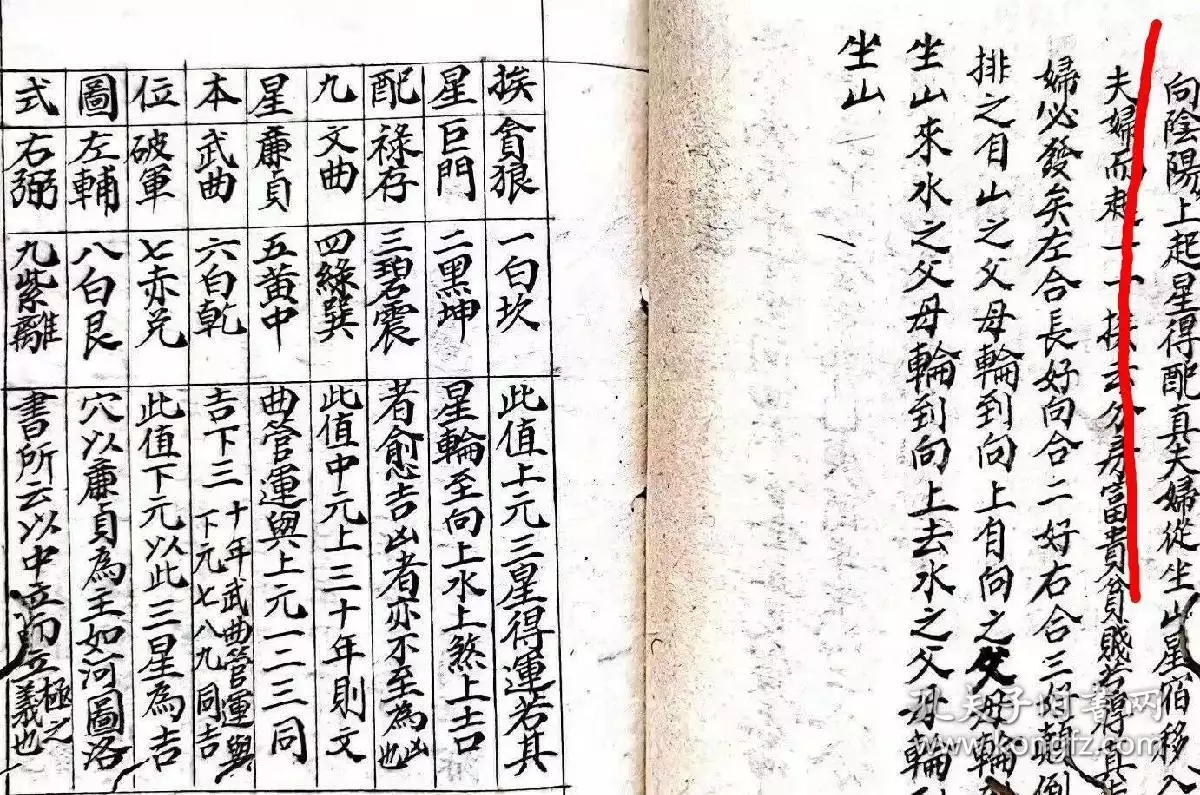 向陰陽上起星得配真夫婦從坐山星宿移入
夫婦而起一一挨去分房富貴貧賤若得真
婦必發矣左合長好向合二好右合三好顛倒
排之自山之父母輪到向上自向之父母輪
坐山來水之父母輪到向上去水之父母輪到
坐山
挨 貪狼 一白坎 此值上元三星得運若其
星 巨門 二黑坤 星輪至向上水上煞上吉
配 祿存 三碧震 者愈吉凶者亦不至為凶也
九 文曲 四綠巽 此值中元上三十年則文
星 廉貞 五黃中 曲管運與上元一二三同
本 武曲 六白乾 吉下三十年武曲管運與下元七八九同吉
位 破軍 七赤兌 此值下元以此三星為吉
圖 左輔 八白艮 穴以廉貞為主如河圖洛
式 右弼 九紫離 書所云以中立而立極之義也
孔夫子旧书网
www.kongfz.com